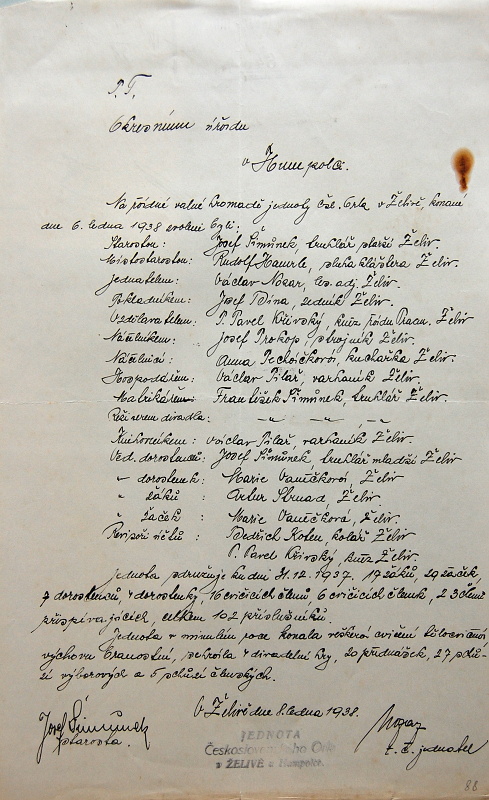 P. T.
Okresnímu úřadu
v Humpolci.
Na řádné valné hromadě jednoty čsl. Orla v Želivě, konané
dne 6. ledna 1938 zvoleni byli:
Starostou: Josef Šimůnek, truhlář starší Želiv.
Místostarostou: Rudolf Hamrle, sluha kláštera Želiv.
Jednatelem: Václav adj. Želiv.
Pokladníkem: Josef Bína, zedník Želiv.
Vzdělavatelem: P. Pavel Křivský, kněz řádu Praem. Želiv
Náčelníkem: Josef Prokop, strojník Želiv.
Náčelnicí: Anna kuchařka Želiv.
Hospodářem: Václav Pilař, varhaník Želiv.
Matrikářem: František Šimůnek, truhlář Želiv.
Režiserem divadla: -„- -„- -„-
Knihovníkem: Václav Pilař varhaník Želiv.
Ved. dorostenců: Josef Šimůnek, truhlář mladší Želiv
„ dorostenek: Marie Vaníčková, Želiv
„ žáků: Artur Strnad, Želiv
„ žaček: Marie Vaníčková, Želiv.
Revisoři účtů: Bedřich Koten, kolář Želiv
P. Pavel Křivský, kněz Želiv.
Jednota sdružuje ku dni 31.12.1937. 19 žáků, 29 žaček,
7 dorostenců, 7 dorostenky, 16 cvičících členů 6 cvičících členek, 23 členů
přispívajících, celkem 102 příslušníků.
Jednota v minulém roce konala veškerá cvičení tělocvičná
výchovu brannostní, sehrála 7 divadelní hry, 20 přednášek, 27 schů-
zí výborových a 5 schůzí členských.
V Želivě dne 8. ledna 1938.
Josef Šimůnek
starosta.
t. č. jednatel
JEDNOTA
Československého Orla
v ŽELIVĚ u Humpolce.
88